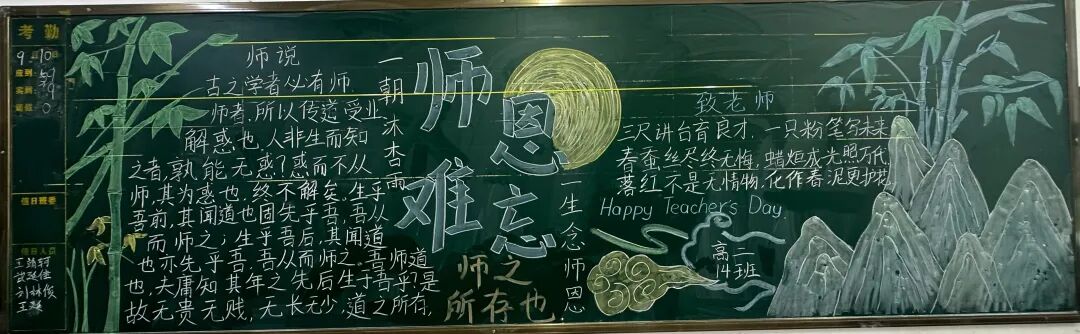 考勤
9月10日
应到：59
实到：59
迟到：0
值日班委
值日人员
师说
古之学者必有师。
师者，所以传道受业
解惑也，人非生而知
之者，孰能无惑？惑而不从
师，其为惑也，终不解矣。生乎
吾前，其闻道也固先乎吾，吾从
而师之；生乎吾后，其闻道
也亦先乎吾，吾从而师之。吾师道
也，夫庸知其年之先后生于吾乎？是
故无贵无贱，无长无少，道之所存，
师之
所存也
一朝沐杏雨
师恩难忘
一生念师恩
致老师
三尺讲台育良才，一只粉笔写未来
春蚕丝尽终无悔，蜡炬成光照万代
落红不是无情物，化作春泥更护花
Happy Teacher's Day
高二
14班